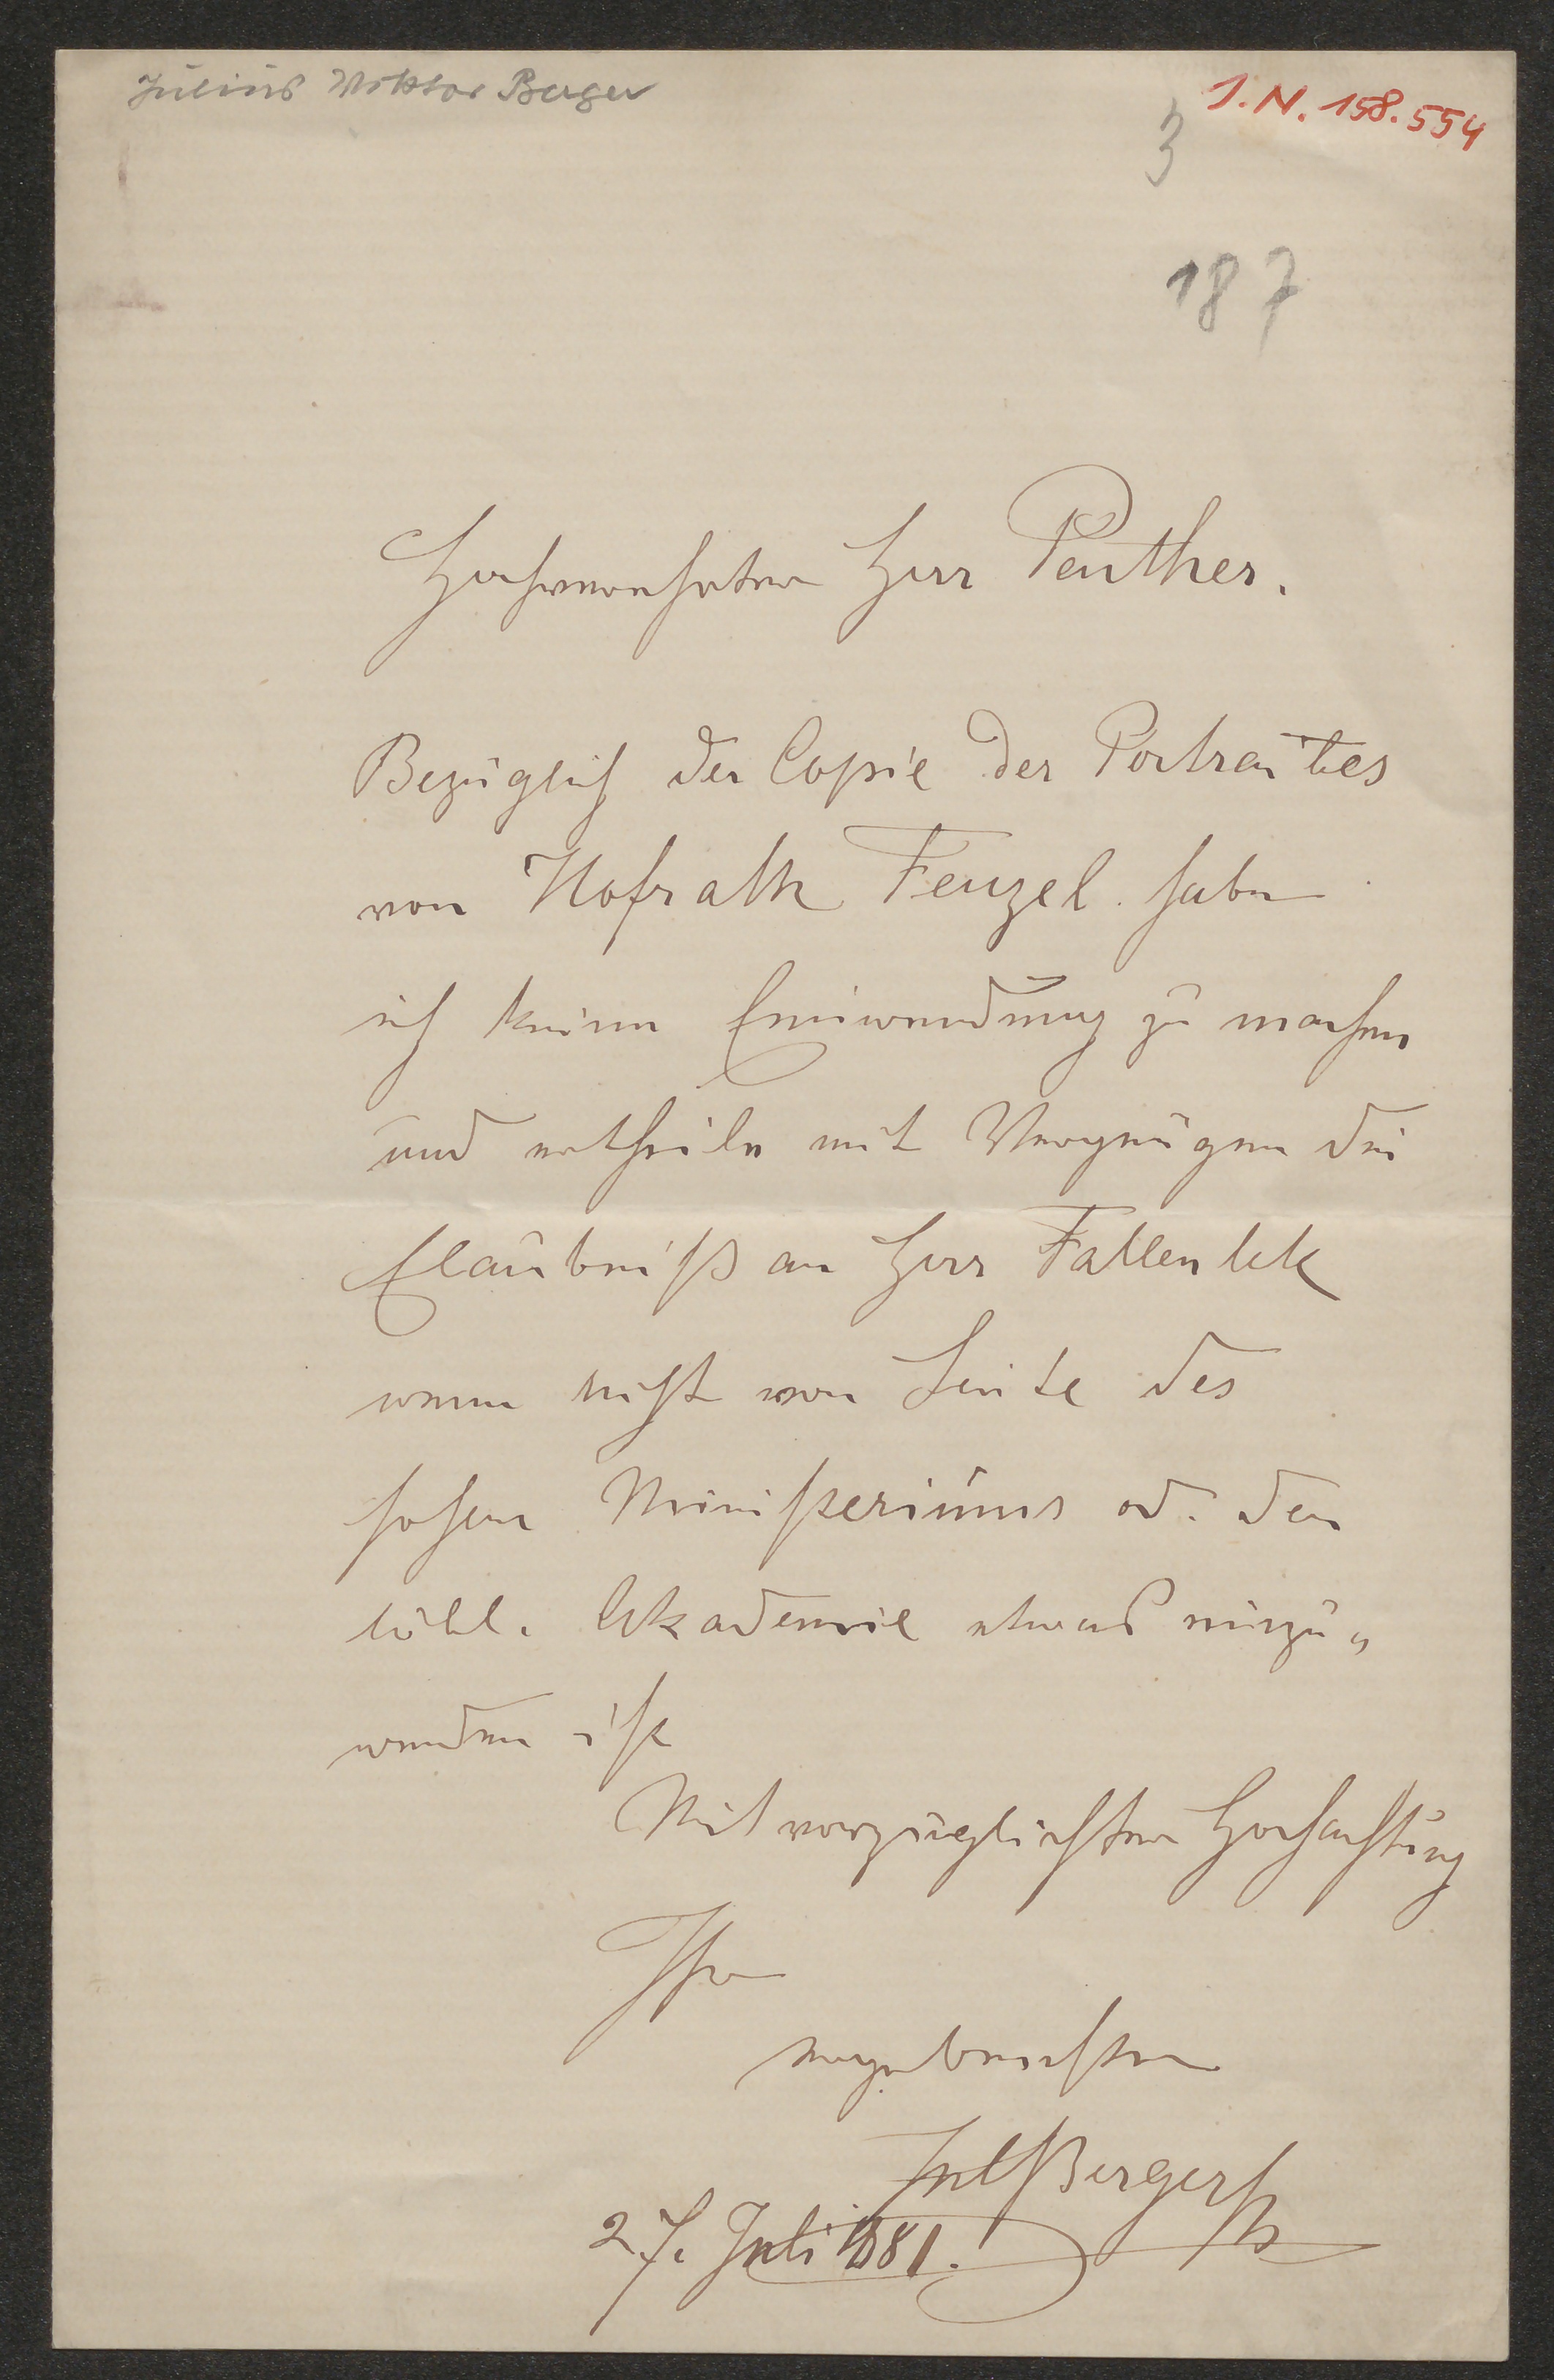 Julius Viktor Berger
I.N. 158.554
3
187
Hochverehrter Herr Penther.
Bezüglich der Copie des Portraites
von Hofrath Fenzel habe
ich keine Einwendung zu machen
und ertheile mit Vergnügen die
Erlaubniß an Herr Fallenbök
wenn nicht von Seite des
hohen Ministeriums od. der
löbl. Akademie etwas einzu„
wenden ist
Mit vorzüglichster Hochachtung
Ihr
ergebenster
Jul Berger
27. Juli 1881.